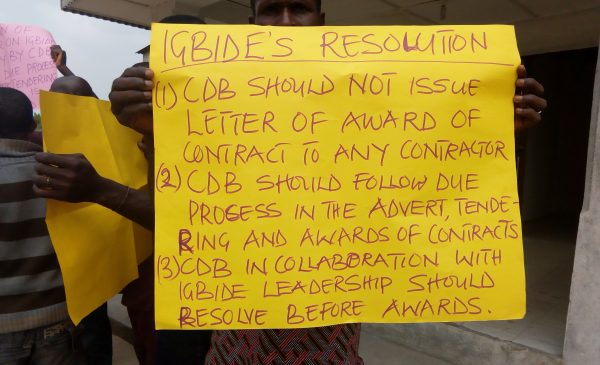 N OF
ON IGBIDE
BY CDB
DUE PROCESS
TENDERING
IGBIDE'S RESOLUTION
(1) CDB SHOULD NOT ISSUE
LETTER OF AWARD OF
CONTRACT TO ANY CONTRACTOR
(2) CDB SHOULD FOLLOW DUE
PROCESS IN THE ADVERT, TENDE-
RING AND AWARDS OF CONTRACTS
(3) CDB IN COLLABORATION WITH
IGBIDE LEADERSHIP SHOULD
RESOLVE BEFORE AWARDS.